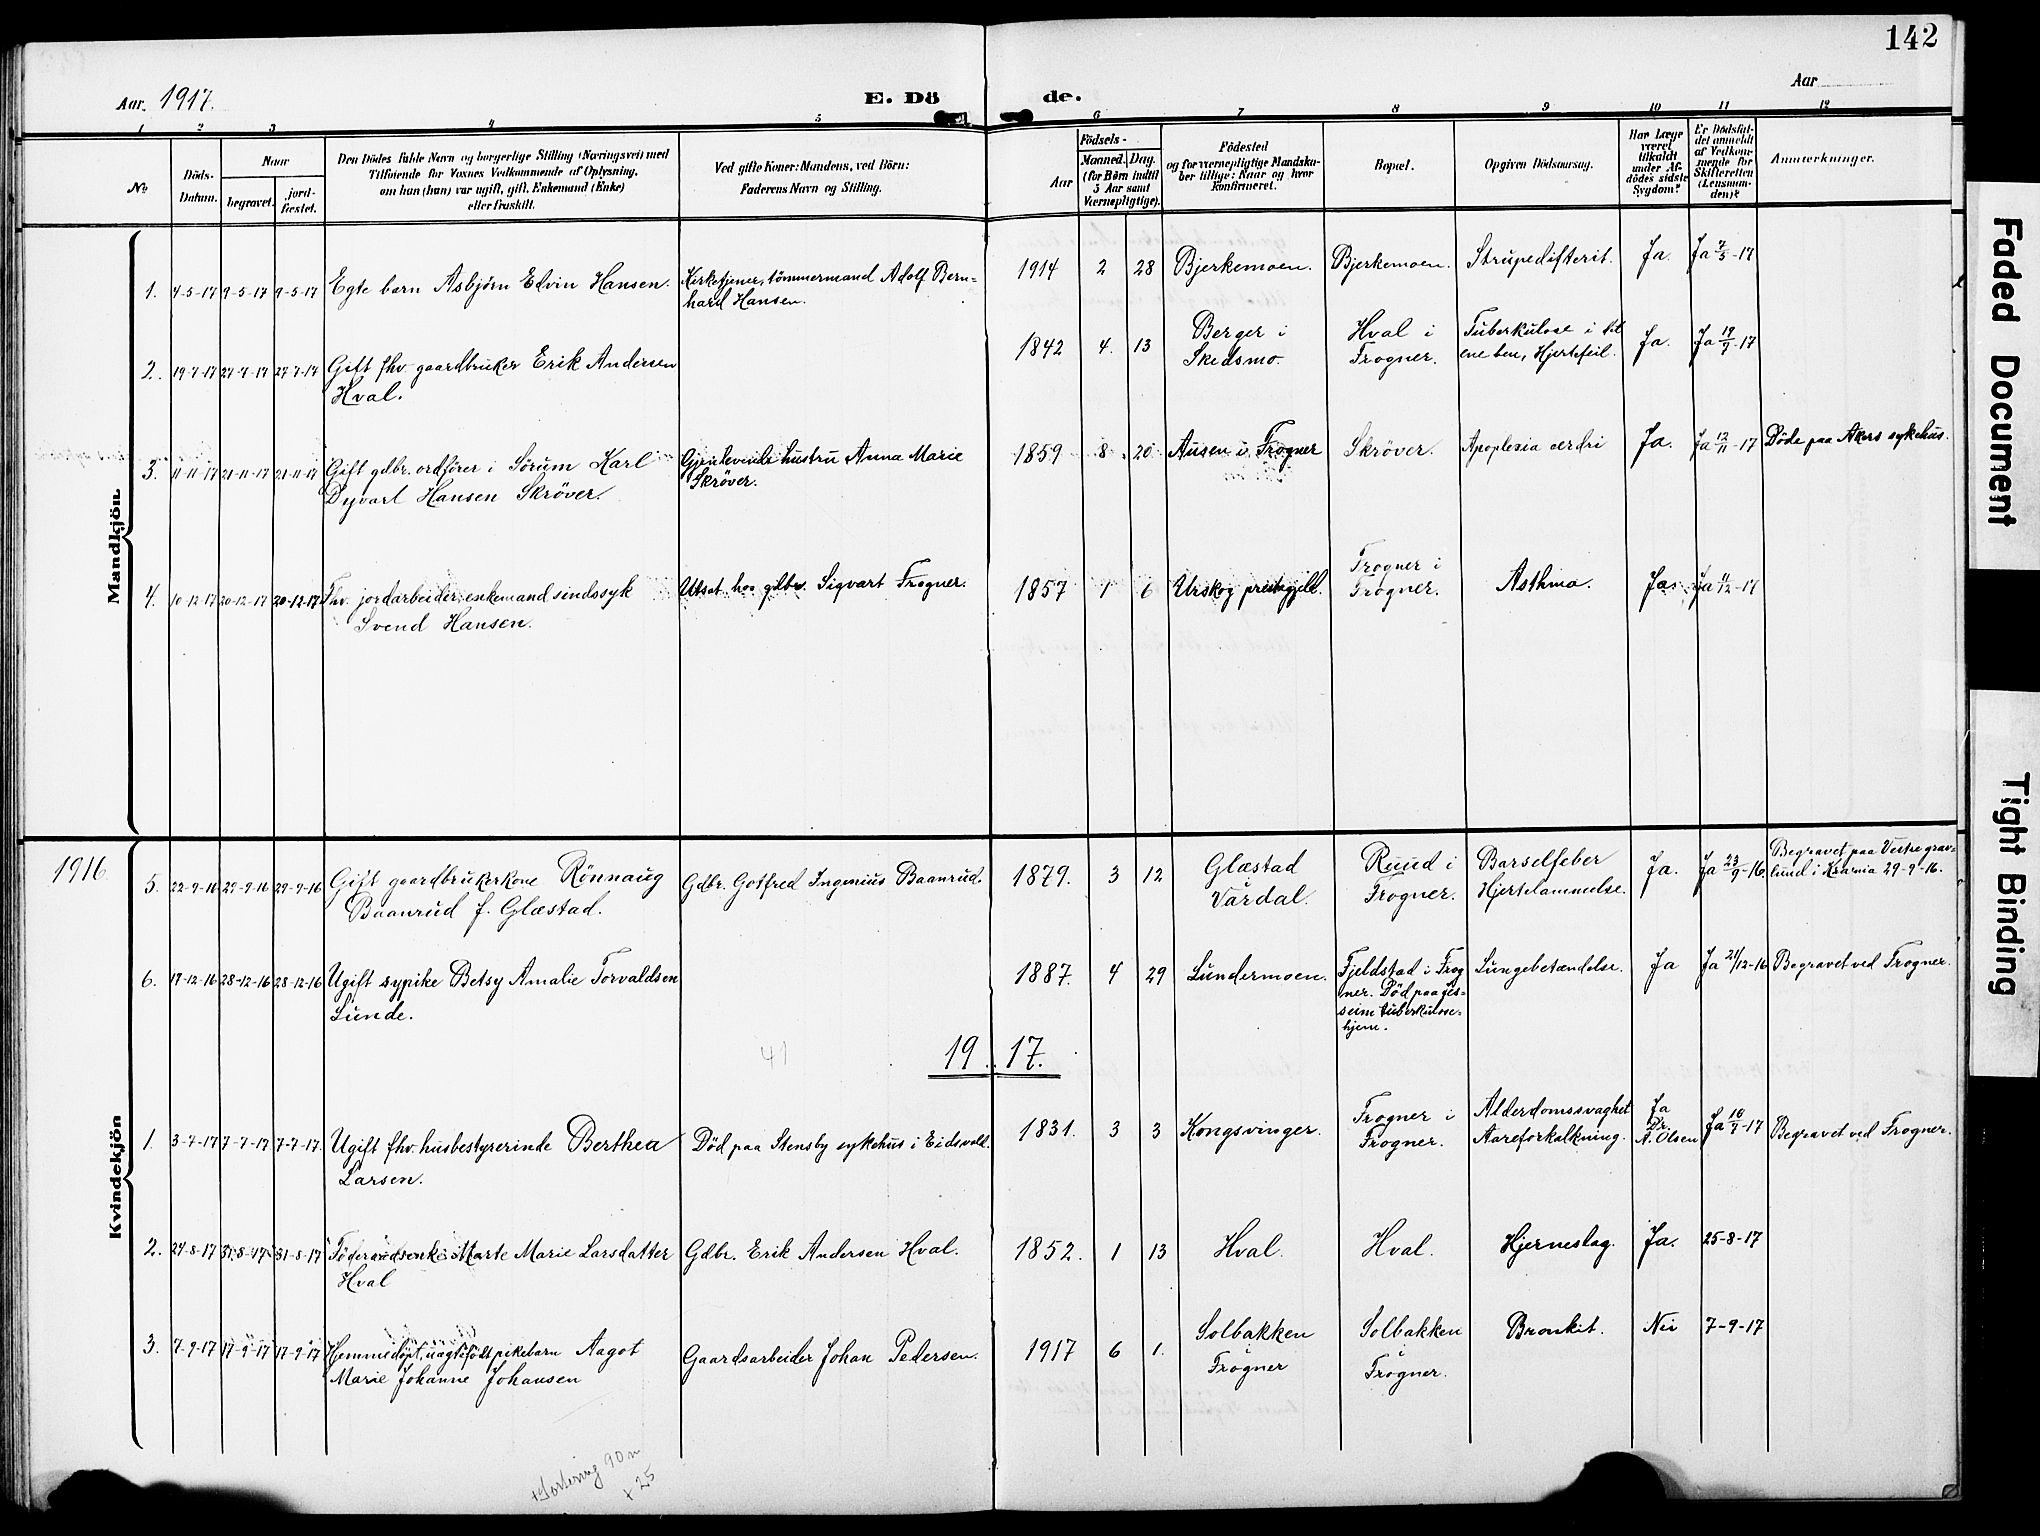 142
Aar. 1917.
E. Dö de.
Aar
1 2 3 4 5 6 7 8 9 10 11 12
No
Döds-
Datum.
Naar
begravet.
jord-
fæstet.
Den Dödes fulde Navn og borgerlige Stilling (Næringsvei) med
Tilföiende for Voxnes Vedkommende af Oplysning,
om han (hun) var ugift, gift, Enkemand (Enke)
eller fraskilt.
Ved gifte Koner: Mandens, ved Börn:
Faderens Navn og Stilling.
Födsels-
Aar
Maaned. Dag.
(for Börn indtil
5 Aar samt
Værnepligtige).
Födested
og for værnepligtige Mandska-
ber tillige: Naar og hvor
konfirmeret.
Bopæl.
Opgiven Dödsaarsag.
Har Læge
været
tilkaldt
under Af-
dödes sidste
Sygdom?
Er Dödsfal-
det anmeldt
af Vedkom-
mende for
Skifteretten
(Lensman-
den)?
Anmærkninger.
Mandkjön
1. 4-5-17 9-5-17 9-5-17 Egte barn Asbjörn Edvin Hansen. Kirketjener, tömmermand Adolf Bern-
hard Hansen. 1914 2 28 Bjerkemoen. Bjerkemoen. Strupedifterit. Ja. Ja 7/5-17
2. 19-7-17 27-7-17 27-7-17 Gift fhv. gaardbruker Erik Andersen
Hval. 1842 4. 13 Berger i
Skedsmo. Hval i
Frogner. Tuberkulose i
ene ben, Hjertefeil. Ja. Ja 19/7-17
3. 11-11-17 21-11-17 21-11-17 Gift gdbr. ordförer i Sörum Karl
Dyvart Hansen Skröver. Gjenlevende hustru Anna Marie
Skröver. 1859 8 20 Ausen i Frogner Skröver. Apoplexia cerebri Ja. Ja 12/11-17 Döde paa Akers sykehus.
4. 10-12-17 20-12-17 20-12-17 Fhv. jordarbeider, enkemand sindssyk
Svend Hansen. Utsat hos gdbr. Sigvart Frogner. 1857 1 6 Urskog prestegjeld. Frogner i
Frogner. Asthma. Ja. Ja 11/12-17
1916.
Kvindekjön
5. 22-9-16 29-9-16 29-9-16 Gift gaardbrukerkone Rönnaug
Baanrud f. Glæstad. Gdbr. Gotfred Ingenius Baanrud. 1879. 3 12 Glæstad
Vardal. Ruud i
Frogner. Barselfeber
Hjertelammelse. Ja. Ja 23/9-16 Begravet paa Vestre grav-
lund i Kr.ania 29-9-16.
6. 17-12-16 28-12-16 28-12-16 Ugift sypike Betsy Amalie Torvaldsen
Lunde. 1887. 4 29 Lundermoen. Fjeldstad i Frog
ner. Död paa Jes-
seim tuberkulose-
hjem. Lungebetændelse. Ja Ja 21/12-16 Begravet ved Frogner.
41
19 17.
1. 3-7-17 7-7-17 7-7-17. Ugift fhv. husbestyrerinde Berthea
Larsen. Död paa Stensby sykehus i Eidsvold. 1831. 3 3 Kongsvinger. Frogner i
Frogner. Alderdomssvaghet
Aareforkalkning. Ja
Dr.
A. Olsen Ja 10/7-17 Begravet ved Frogner.
2. 27-8-17 31-8-17 31-8-17 Föderaadsenke Marte Marie Larsdatter
Hval Gdbr. Erik Andersen Hval. 1852. 1 13 Hval. Hval. Hjerneslag. Ja. 25-8-17
3. 7-9-17 17-9-17 17-9-17 Hjemmedöpt, uægtefödt pikebarn Aagot
Marie Johanne Johansen Gaardsarbeider Johan Pedersen. 1917 6 1. Solbakken
i
Frogner Solbakken
i
Frogner. Bronkit. Nei 7-9-17
90 m
+ 25
Faded Document
Tight Binding